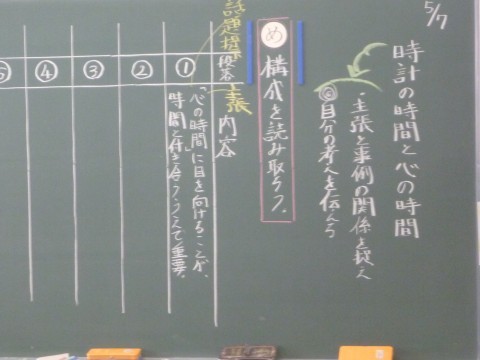 5/7
時計の時間と心の時間
・主張と事例の関係を捉え
自分の考えを伝える
め
構成を読み取ろう。
話題提示
主張
段落
内容
①
「心の時間」に目を向けることが、
時間と付き合ううえで重要。
②
③
④
⑤